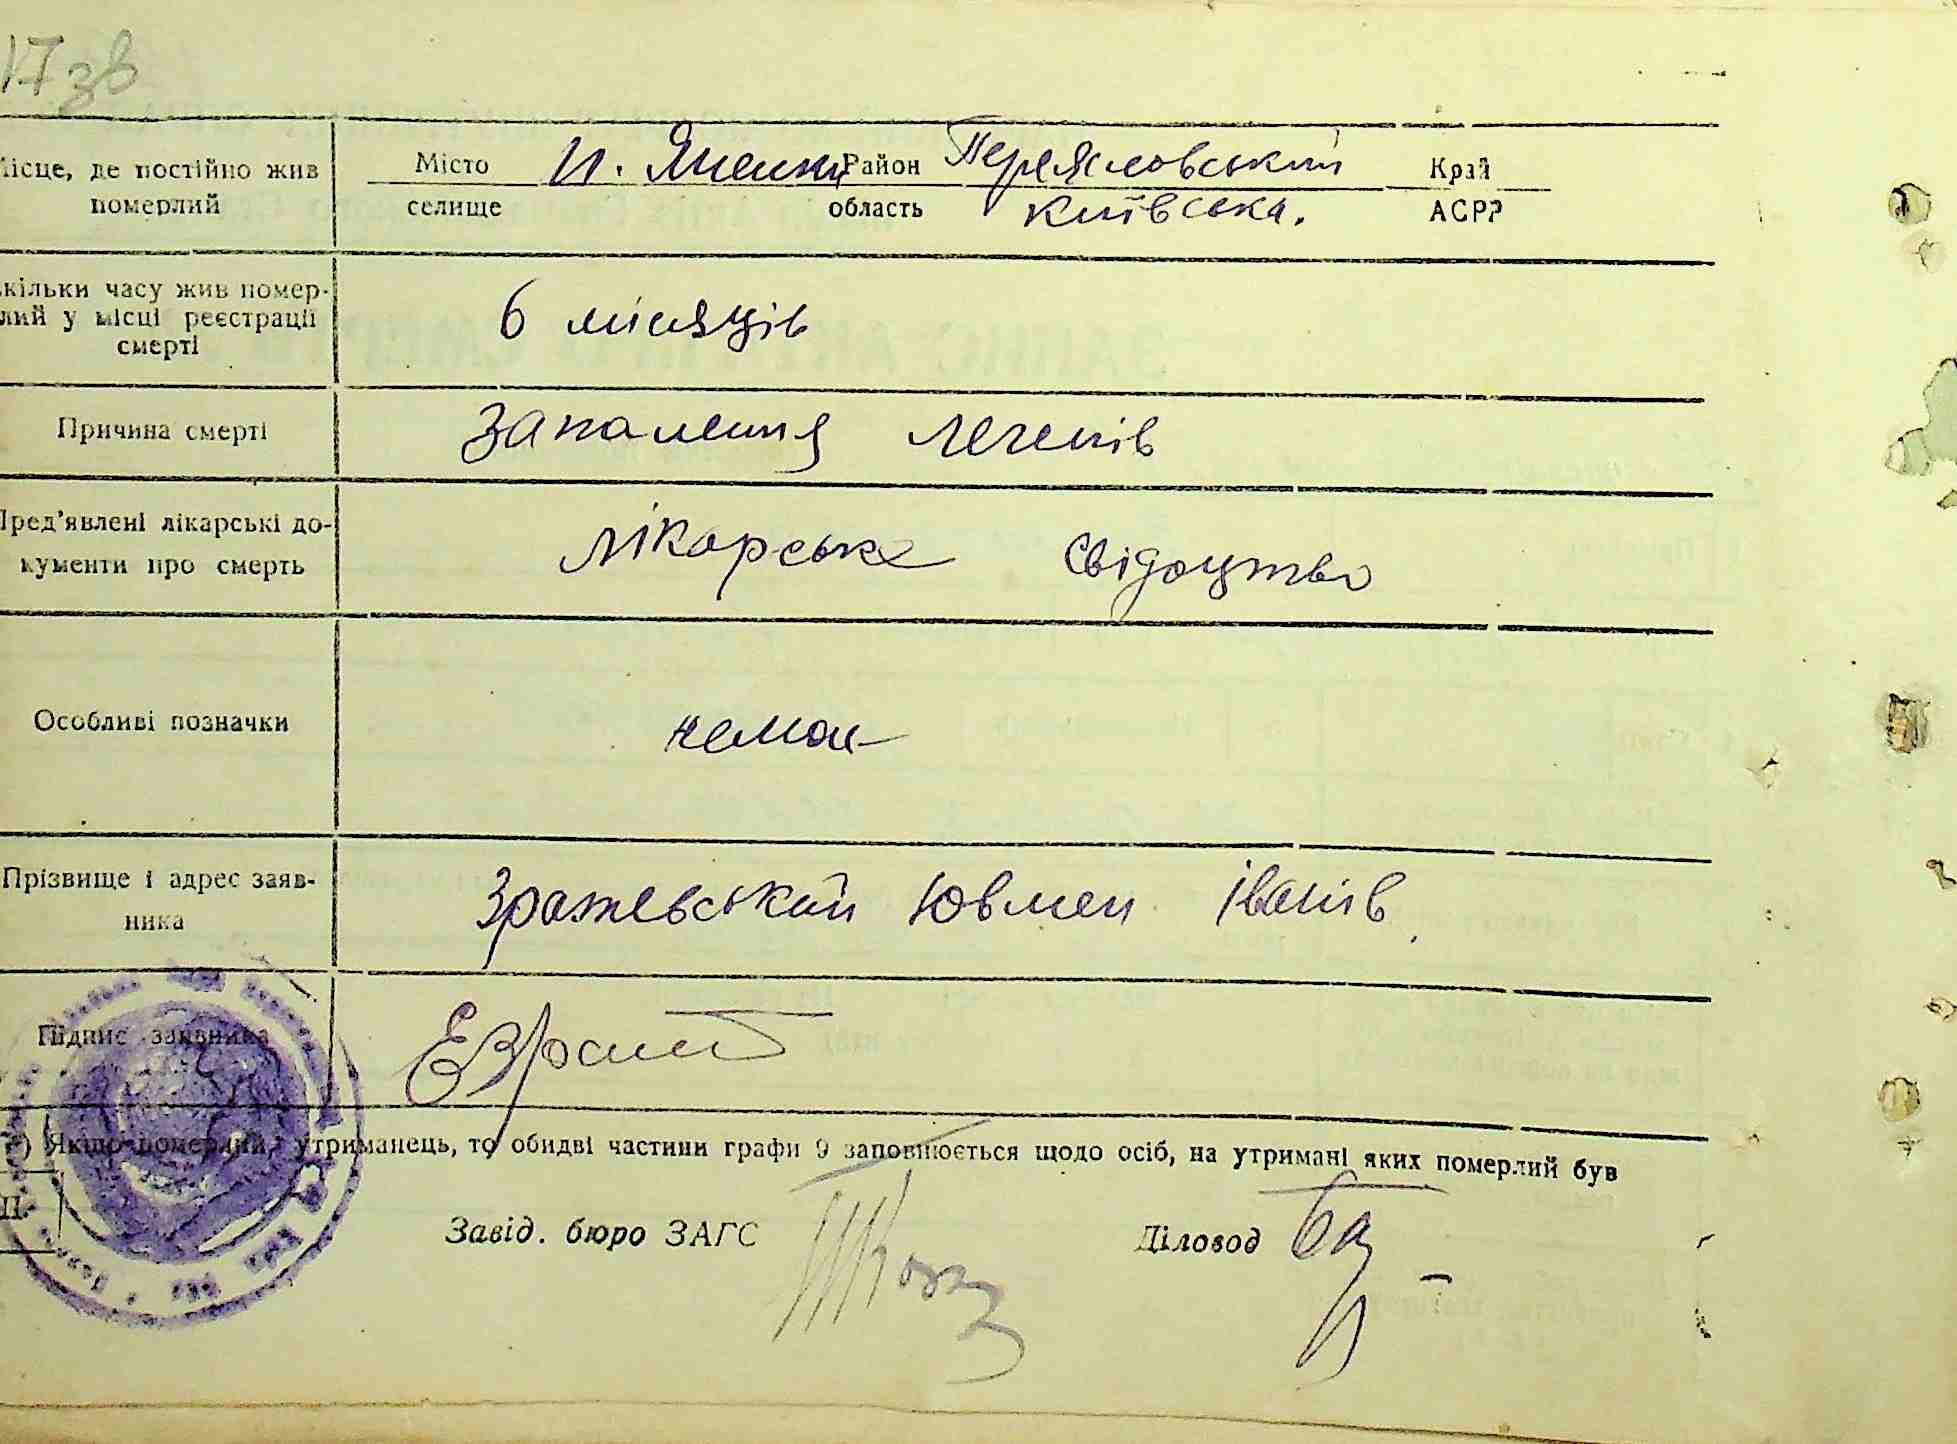 17 зв
Місце, де постійно жив
померлий
Місто Н. Яненки Район Переяславський Край
селище область Київська. АСРР
кільки часу жив помер-
лий у місці реєстрації
смерті
6 місяців
Причина смерті
Запалення легенів
Пред'явлені лікарські до-
кументи про смерть
лікарське свідоцтво
Особливі позначки
немає
Прізвище і адрес заяв-
ника
Зражевський Ювмен Іванів
Підпис заявника
*) Якщо померлий утриманець, то обидві частини графи 9 заповнюється щодо осіб, на утримані яких померлий був
Завід. бюро ЗАГС
Діловод